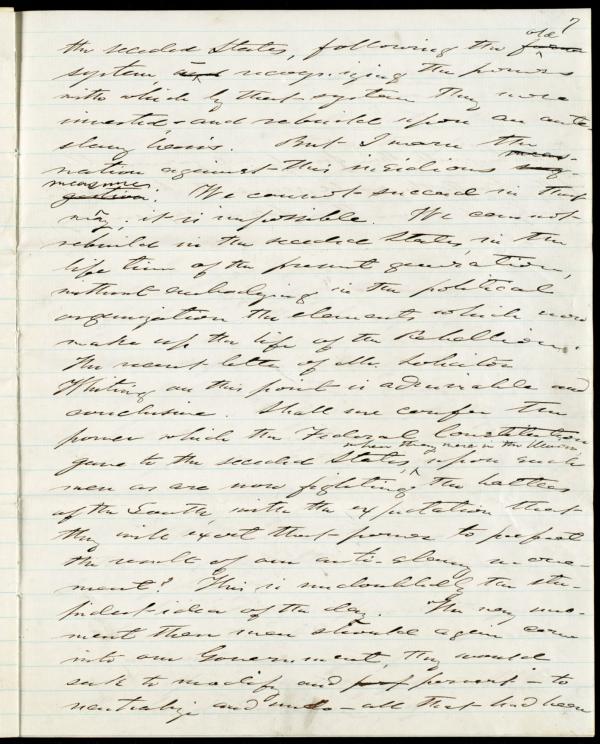 7
the seceded States, following the old
system, recognizing the powers
with which by that system they were
invested - and rebuild upon an anti-
slavery basis. But I warn the
nation against this insidious
measure. We cannot succeed in that
way; it is impossible. We cannot
rebuild in the seceded States, in the
life time of the present generation,
without embodying in the political
organization the elements which now
make up the life of the Rebellion.
The recent letter of Mr. Solicitor
Whiting on this point is admirable and
conclusive. Shall we confer the
power which the Federal Constitution
when they were in the Union
gave to the seceded States, upon such
men as are now fighting the battles
of the South, with the expectation that
they will exert that power to perfect
the result of our anti-slavery move-
ment? This is undoubtedly the stu-
pidest idea of the day. The very mo-
ment these men should again come
into our Government, they would
seek to modify and pervert - to
neutralize and undo - all that had been